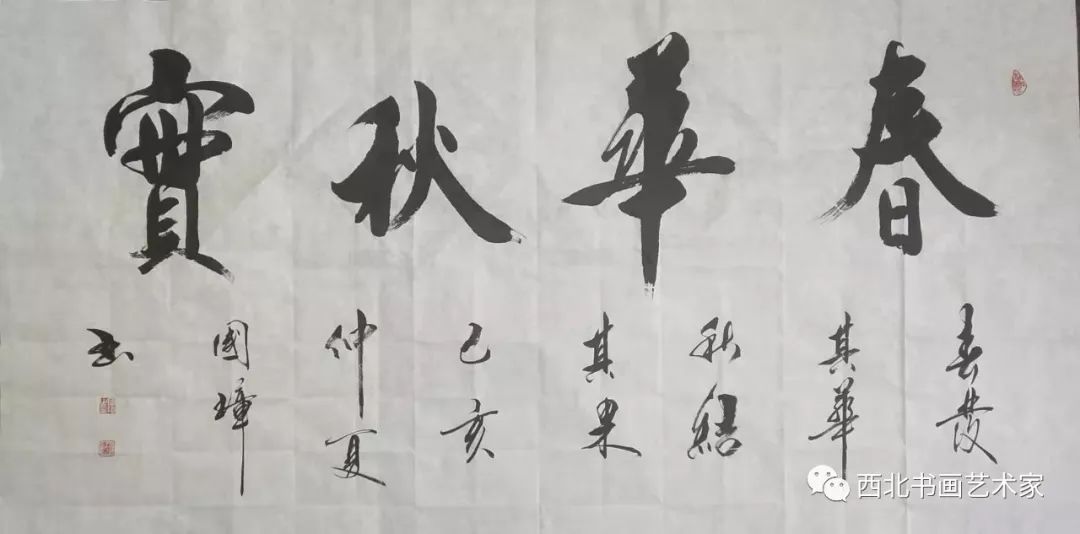 春華秋實
春發
其華
秋結
其果
己亥
仲夏
國璋
书
西北书画艺术家